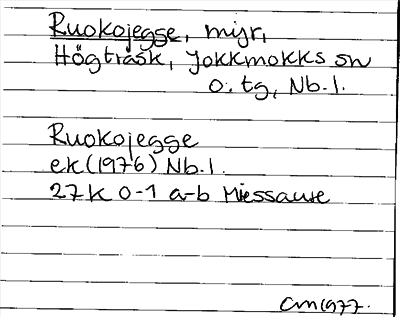 Ruokojegge, myr,
Högträsk, Jokkmokks sn
o. tg, Nb.l.
Ruokojegge
ek (1976) Nb.l.
27K 0-1 a-b Miessaure
CM1977.